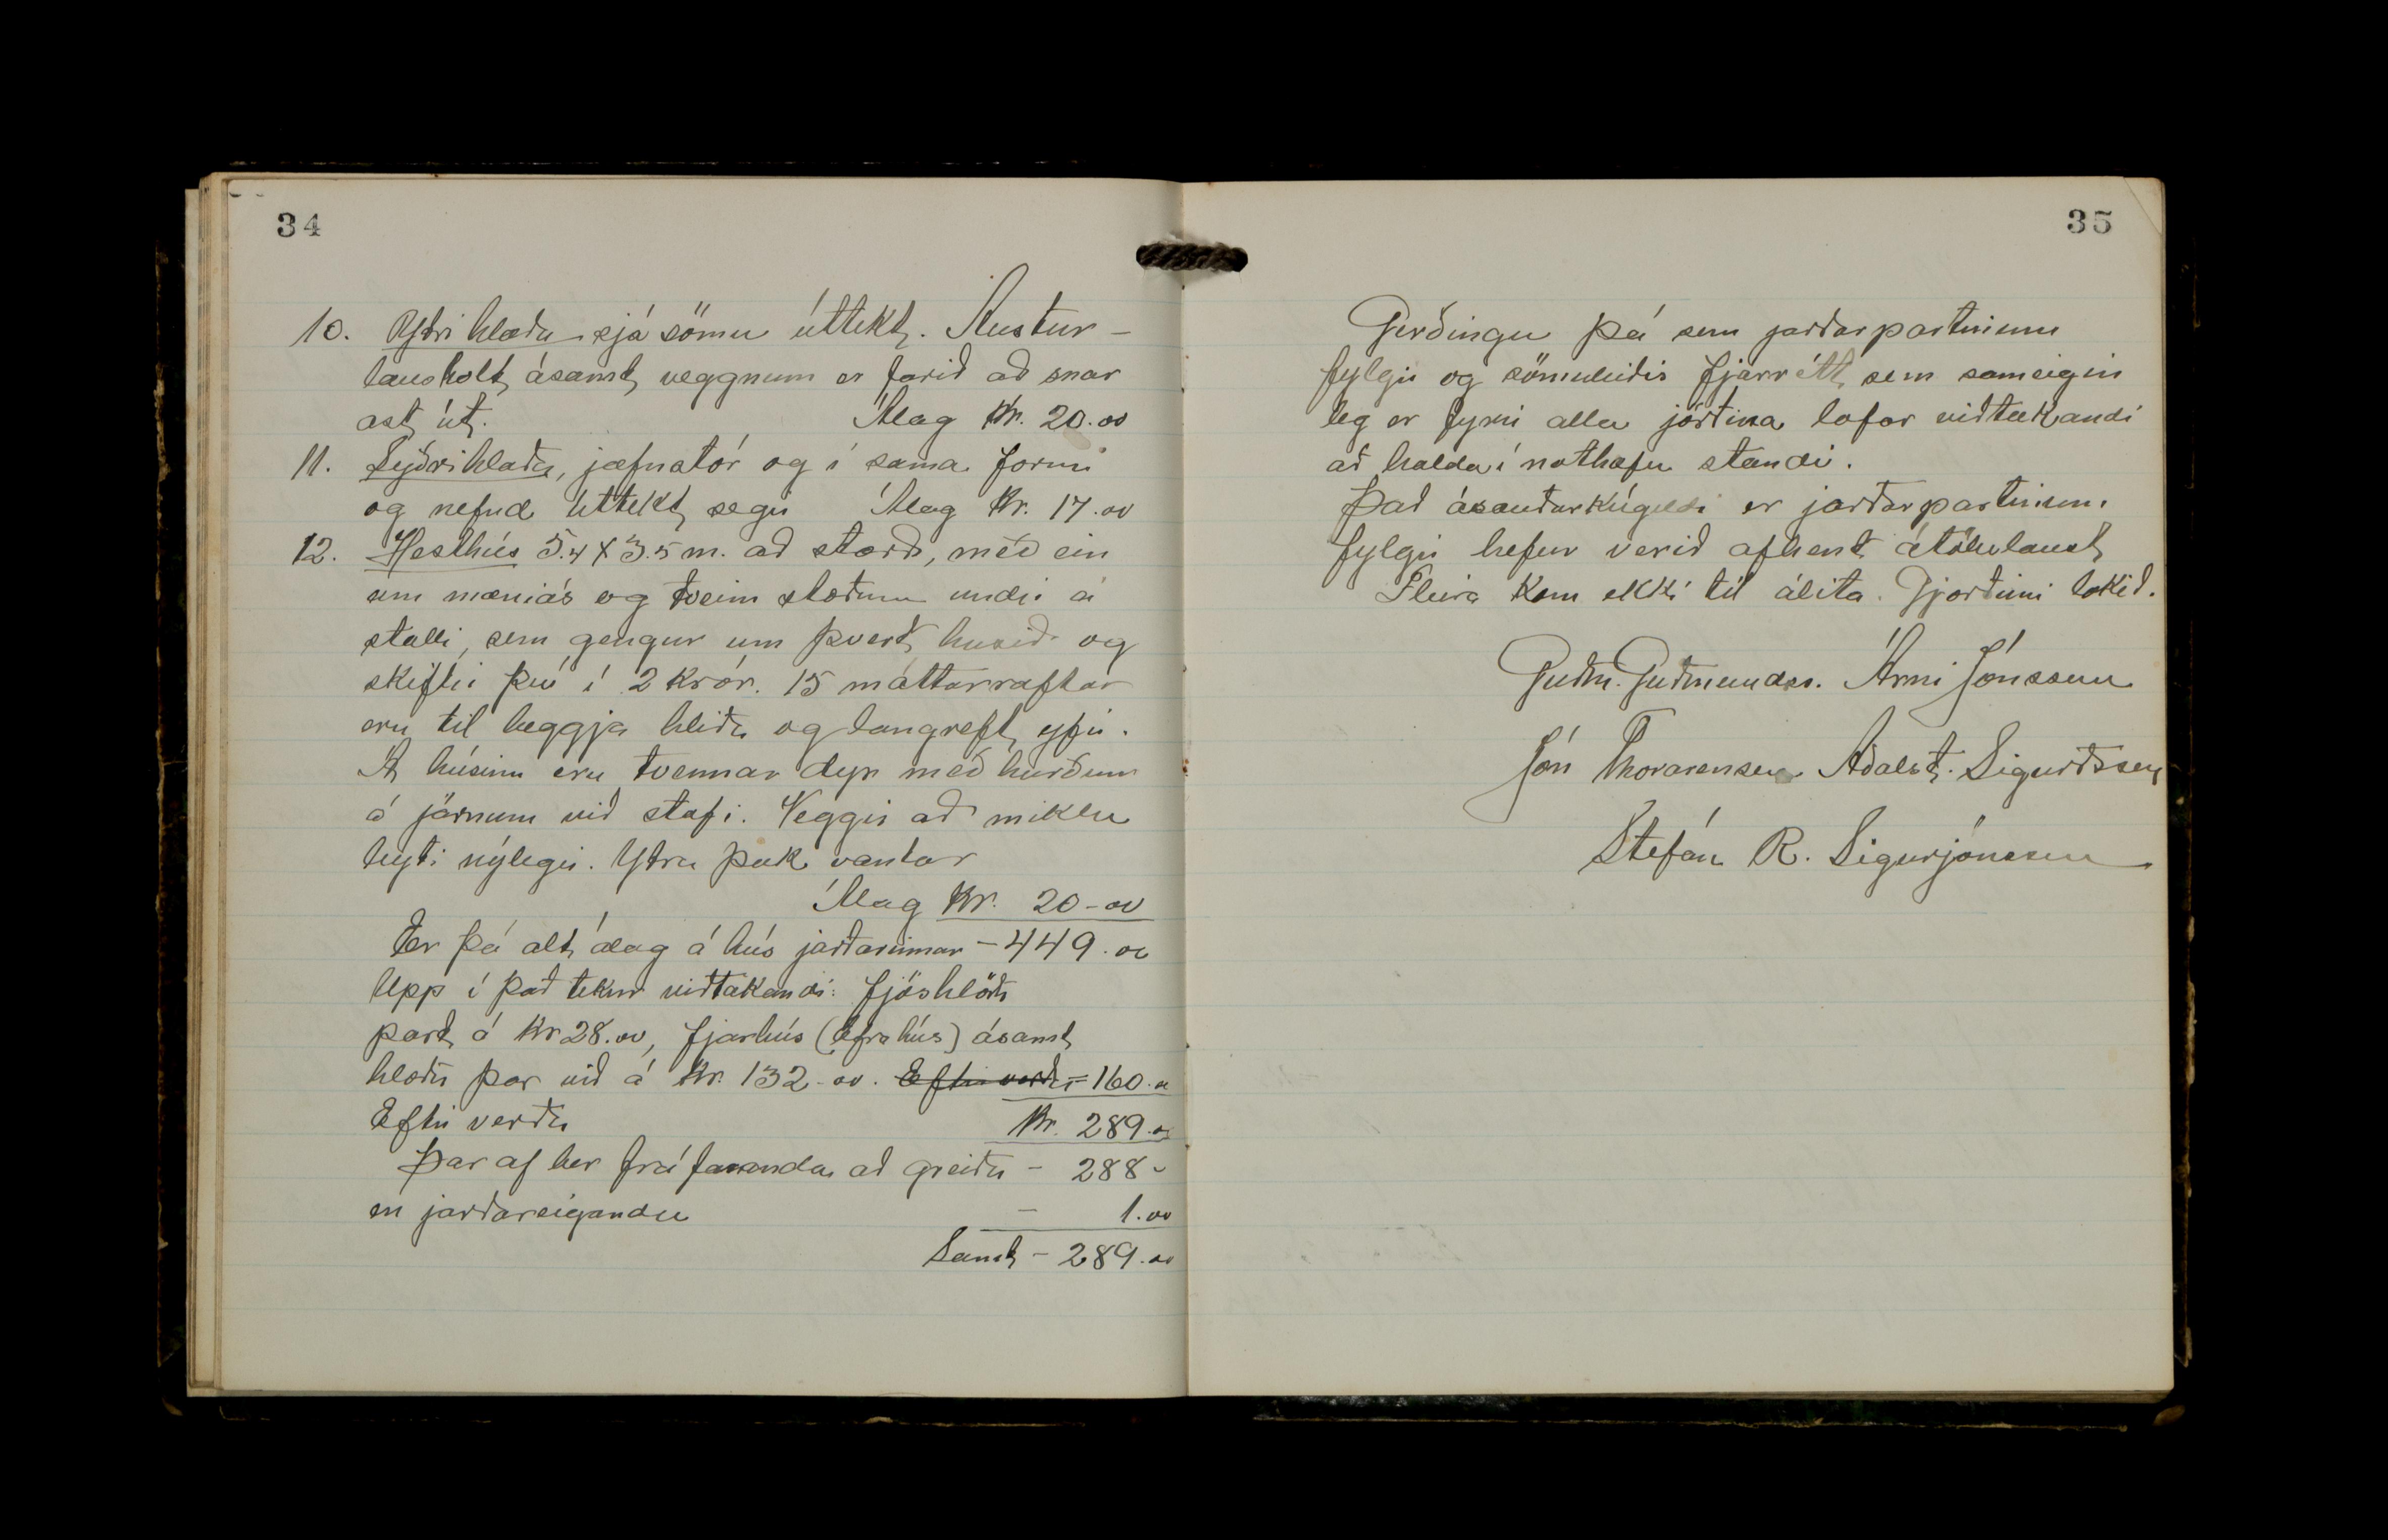 34
10. Ytri hlaða sjá sömu úttekt. Austur-
lausholt, ásamt veggnum er farið að snar
ast út. Álag Kr. 20.00
11. Syðri hlaða, jafnstór og í sama formi
og nefnd úttekt segir Álag Kr. 17.00
12. Hesthús 5.4 X 3.5 m. að stærð, með ein
um mæniás og tveim stoðum undir á
stalli, sem gengur um þvert húsið og
skiftir því í 2 krór. 15 máttarraftar
eru til beggja hliða og langreft yfir.
Á húsinu eru tvennar dyr með hurðum
á járnum við stafi. Veggir að miklu
leyti nýlegir. Ytra þak vantar
Álag Kr. 20-00
Er þá alt álag á hús jarðarinnar - 449.00
Upp í það tekur viðtakandi: fjóshlöðu
part á Kr 28.00, fjárhús (Efra hús) ásamt
hlöðu þar við á Kr. 132-00. Eftir verða = 160.00
Eftir verða Kr. 289.00
Þar af ber fráfaranda að greiða - 288-
en jarðareiganda - 1.00
Samt - 289.00
35
Gerðingu þá sem jarðarpartinum
fylgir og sömuleiðis fjárrétt, sem sameigin
leg er fyrir alla jörðina lofar viðtakandi
að halda í nothæfu standi.
Það ásauðarkúgildi er jarðarpartinum
fylgir hefur verið afhent átölulaust,
Fleira kom ekki til álita. Gjörðinni lokið.
Guðm. Guðmundss. Árni Jónsson
Jón Thorarensen Aðalst. Sigurðsson
Stefán R. Sigurjónsson